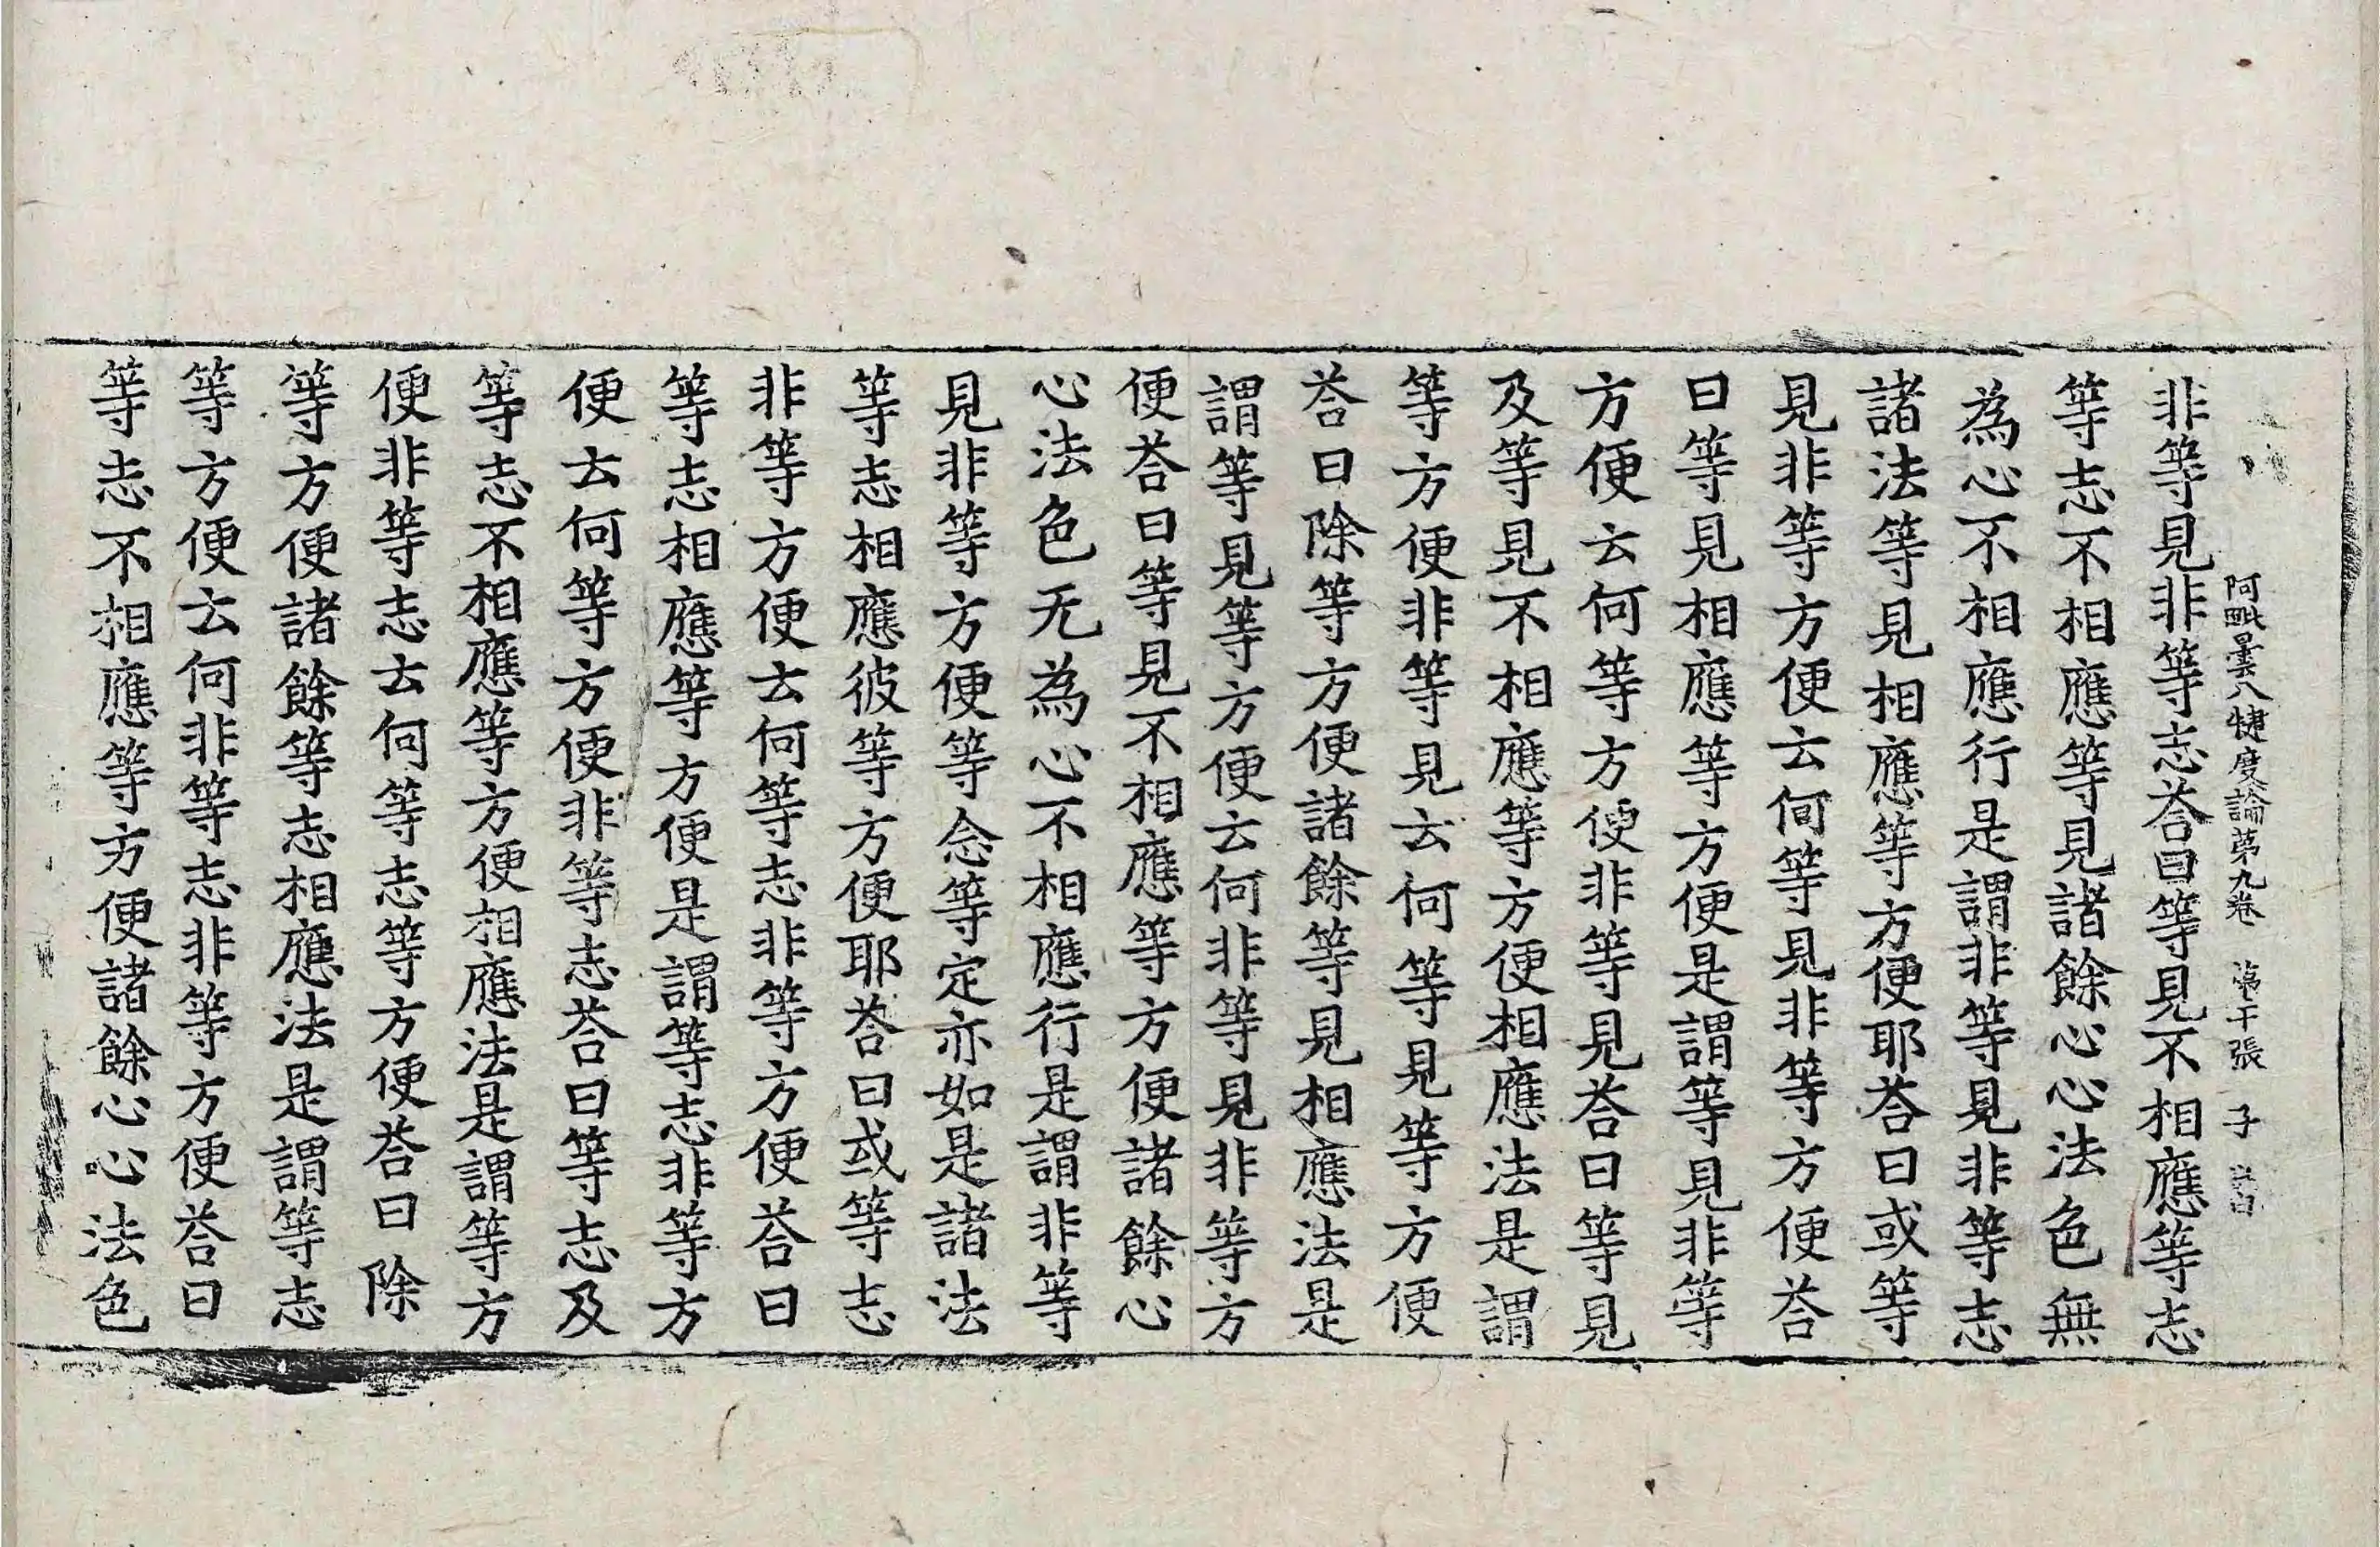 阿毗曇八犍度論第九卷 第十張 子
非等見非等志荅曰等見不相應等志
等志不相應等見諸餘心心法色無
為心不相應行是謂非等見非等志
諸法等見相應等方便耶荅曰或等
見非等方便云何等見非等方便荅
曰等見相應等方便是謂等見非等
方便云何等方便非等見荅曰等見
及等見不相應等方便相應法是謂
等方便非等見云何等見等方便
荅曰除等方便諸餘等見相應法是
謂等見等方便云何非等見非等方
便荅曰等見不相應等方便諸餘心
心法色无為心不相應行是謂非等
見非等方便等念等定亦如是諸法
等志相應彼等方便耶荅曰或等志
非等方便云何等志非等方便荅曰
等志相應等方便是謂等志非等方
便云何等方便非等志荅曰等志及
等志不相應等方便相應法是謂等方
便非等志云何等志等方便荅曰除
等方便諸餘等志相應法是謂等志
等方便云何非等志非等方便荅曰
等志不相應等方便諸餘心心法色